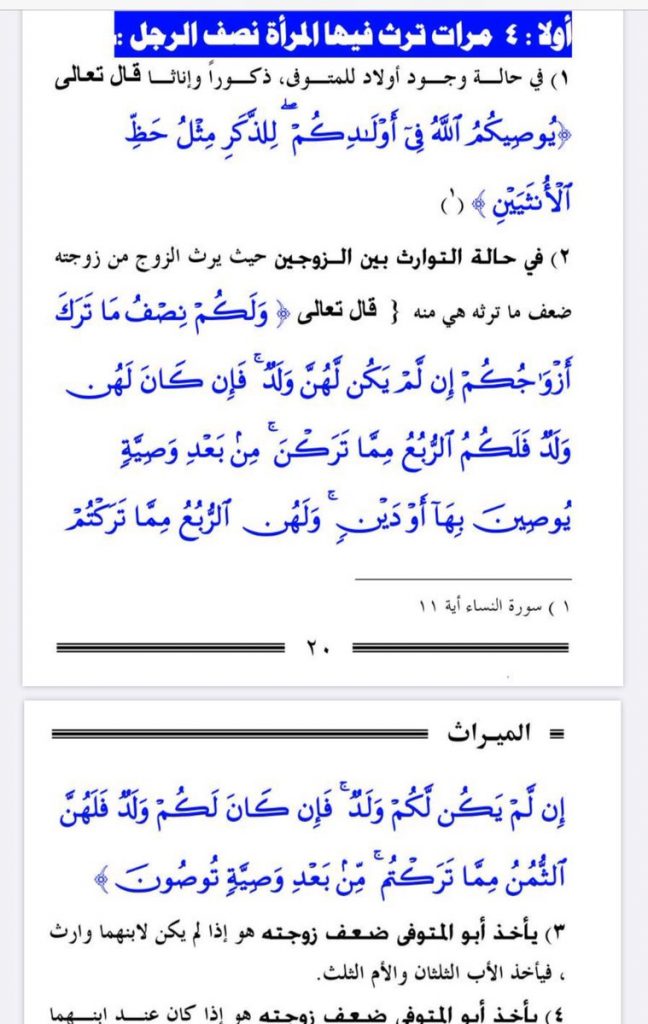 أولا : ٤ مرات ترث فيها المرأة نصف الرجل :
١) في حالة وجود أولاد للمتوفى، ذكوراً وإناثا قال تعالى
﴿يُوصِيكُمُ ٱللَّهُ فِىٓ أَوْلَـٰدِكُمْ ۖ لِلذَّكَرِ مِثْلُ حَظِّ
ٱلْأُنثَيَيْنِ ﴾ (١)
٢) في حالة التوارث بين الزوجين حيث يرث الزوج من زوجته
ضعف ما ترثه هي منه { قال تعالى ﴿ وَلَكُمْ نِصْفُ مَا تَرَكَ
أَزْوَٰجُكُمْ إِن لَّمْ يَكُن لَّهُنَّ وَلَدٌ ۚ فَإِن كَانَ لَهُن
وَلَدٌ فَلَكُمُ ٱلرُّبُعُ مِمَّا تَرَكْنَ ۚ مِنۢ بَعْدِ وَصِيَّةٍ
يُوصِينَ بِهَآ أَوْ دَيْنٍ ۚ وَلَهُن ٱلرُّبُعُ مِمَّا تَرَكْتُمْ
١ ) سورة النساء أية ١١
٢٠
الميراث
إِن لَّمْ يَكُن لَّكُمْ وَلَدٌ ۚ فَإِن كَانَ لَكُمْ وَلَدٌ فَلَهُنَّ
ٱلثُّمُنُ مِمَّا تَرَكْتُم ۚ مِّنۢ بَعْدِ وَصِيَّةٍ تُوصُونَ ﴾
٣) يأخذ أبو المتوفى ضعف زوجته هو إذا لم يكن لابنهما وارث
، فيأخذ الأب الثلثان والأم الثلث.
٤) يأخذ أبو المتوفى ضعف زوجته هو إذا كان عند ابنهما